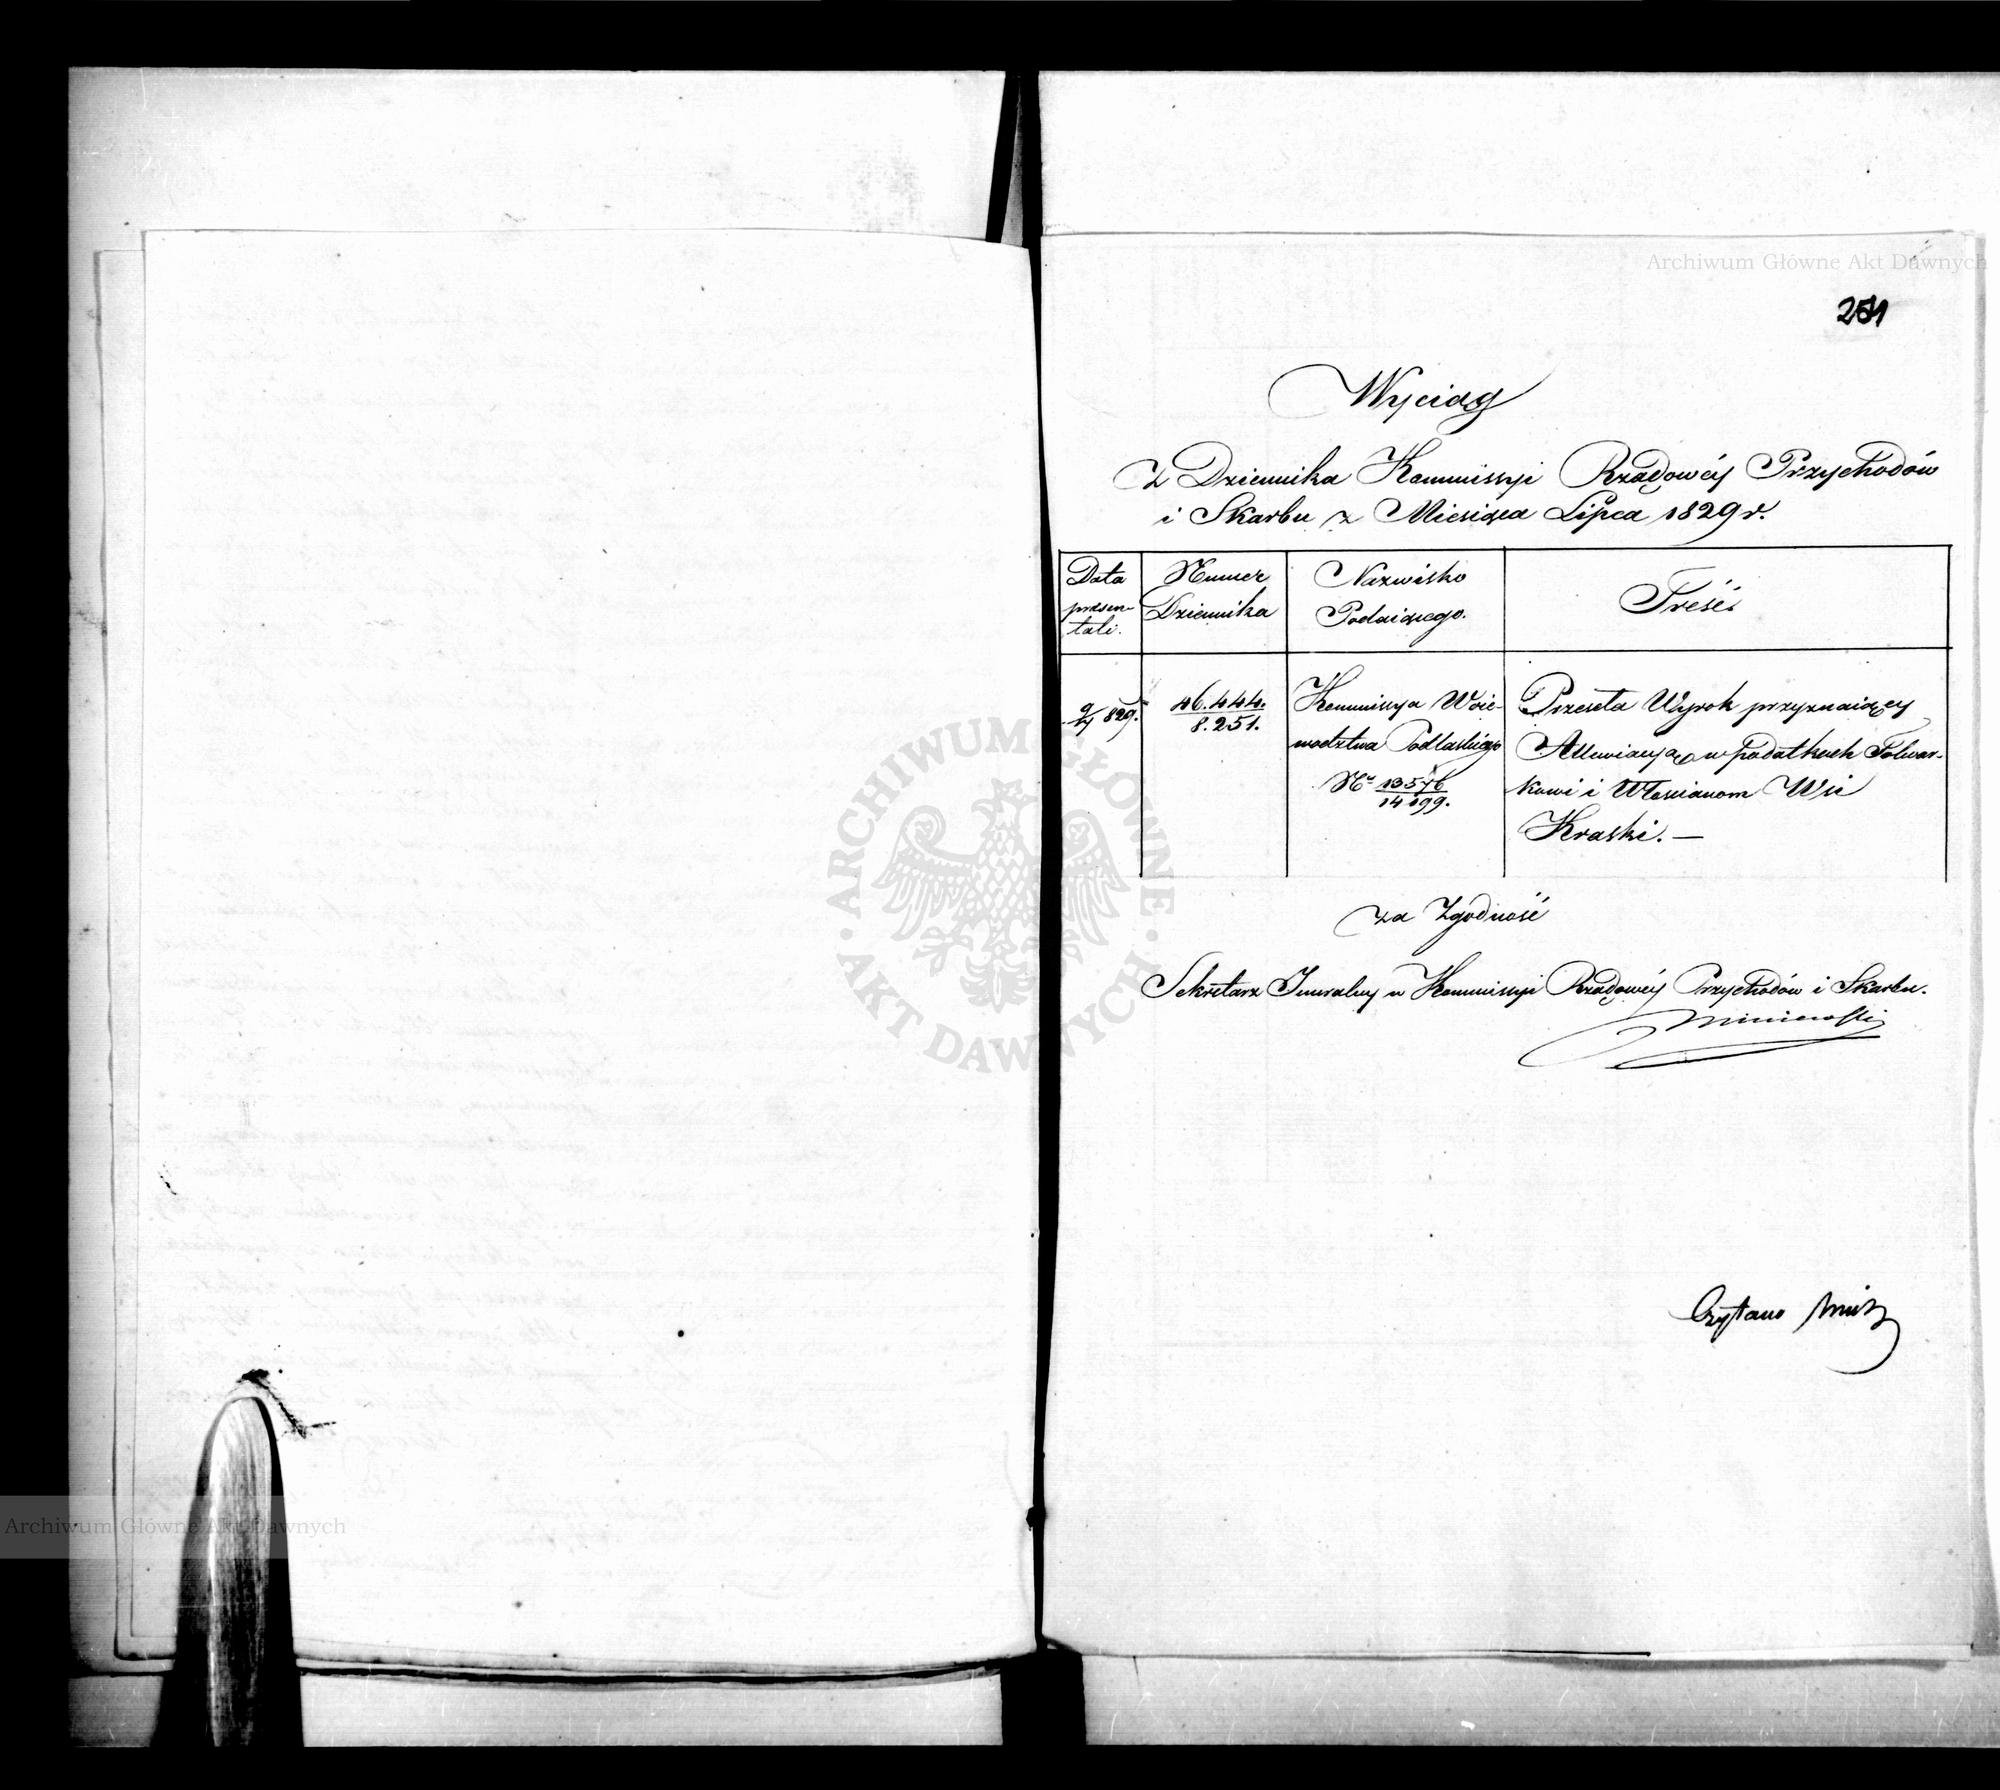 Archiwum Główne Akt Dawnych
251
Wyciąg
z Dziennika Kommissyi Rządowéy Przychodów
i Skarbu z Miesiąca Lipca 1829 r.
Data prezentati.
Numer Dziennika
Nazwisko Podaiącego.
Treść
9/7 829.
46.444. / 8.251.
Kommissya Woie-
wodztwa Podlaskiego
Nr 13576 / 14199.
Przeseła Wyrok przyznaiący
Allewiacyą w podatkach Folwar-
kowi i Włościanom Wsi
Kraski. —
za Zgodność
Sekretarz Jeneralny w Kommissyi Rządowéy Przychodów i Skarbu.
Czytano
ARCHIWUM GŁÓWNE
AKT DAWNYCH
Archiwum Główne Akt Dawnych